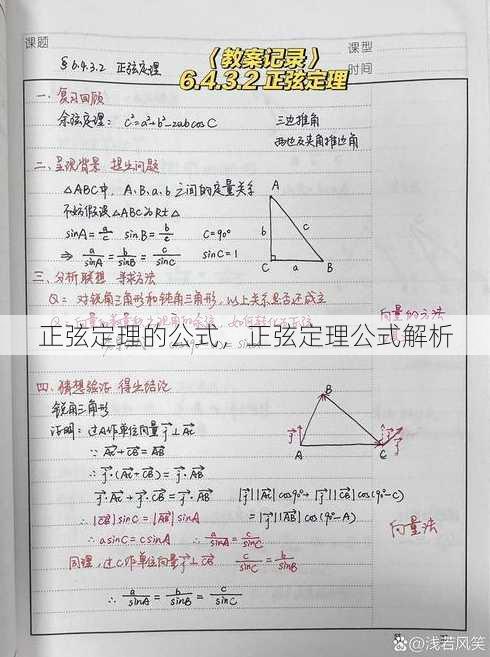 课题
课型
《教案记录》
§6.4.3.2 正弦定理
6.4.3.2 正弦定理
时间
一、复习回顾
余弦定理：c²=a²+b²-2abcosC
三边推角
两边及夹角推边角
二、呈现背景 提出问题
△ABC中，A、B、a、b之间的定量关系
不妨假设△ABC为Rt△
sinA=a/c sinB=b/c C=90°
⇒ a/sinA = b/sinB = c/sinC sinC=1
A
b
c
C
a
B
三、分析联想 寻求方法
Q：对锐角三角形和钝角三角形，以上关系是否还成立
向量的方法
正弦定理的公式，正弦定理公式解析
四、猜想验证 得出结论
锐角三角形
证明：过A作单位向量j⊥AC
∵ AC+CB=AB
∴ j·(AC+CB)=j·AB
j·AC+j·CB=j·AB |j||AC|cos90°+|j||CB|cos(90°-C)
∴ |CB|sinC=|AB|sinA =|j||AB|cos(90°-A)
∴ asinC=csinA ∴ a/sinA = c/sinC
同理，过C作单位向量j⊥CB c/sinC = b/sinB
∴ a/sinA = b/sinB = c/sinC
B
j
A
C
j
j
向量法
@浅若风笑